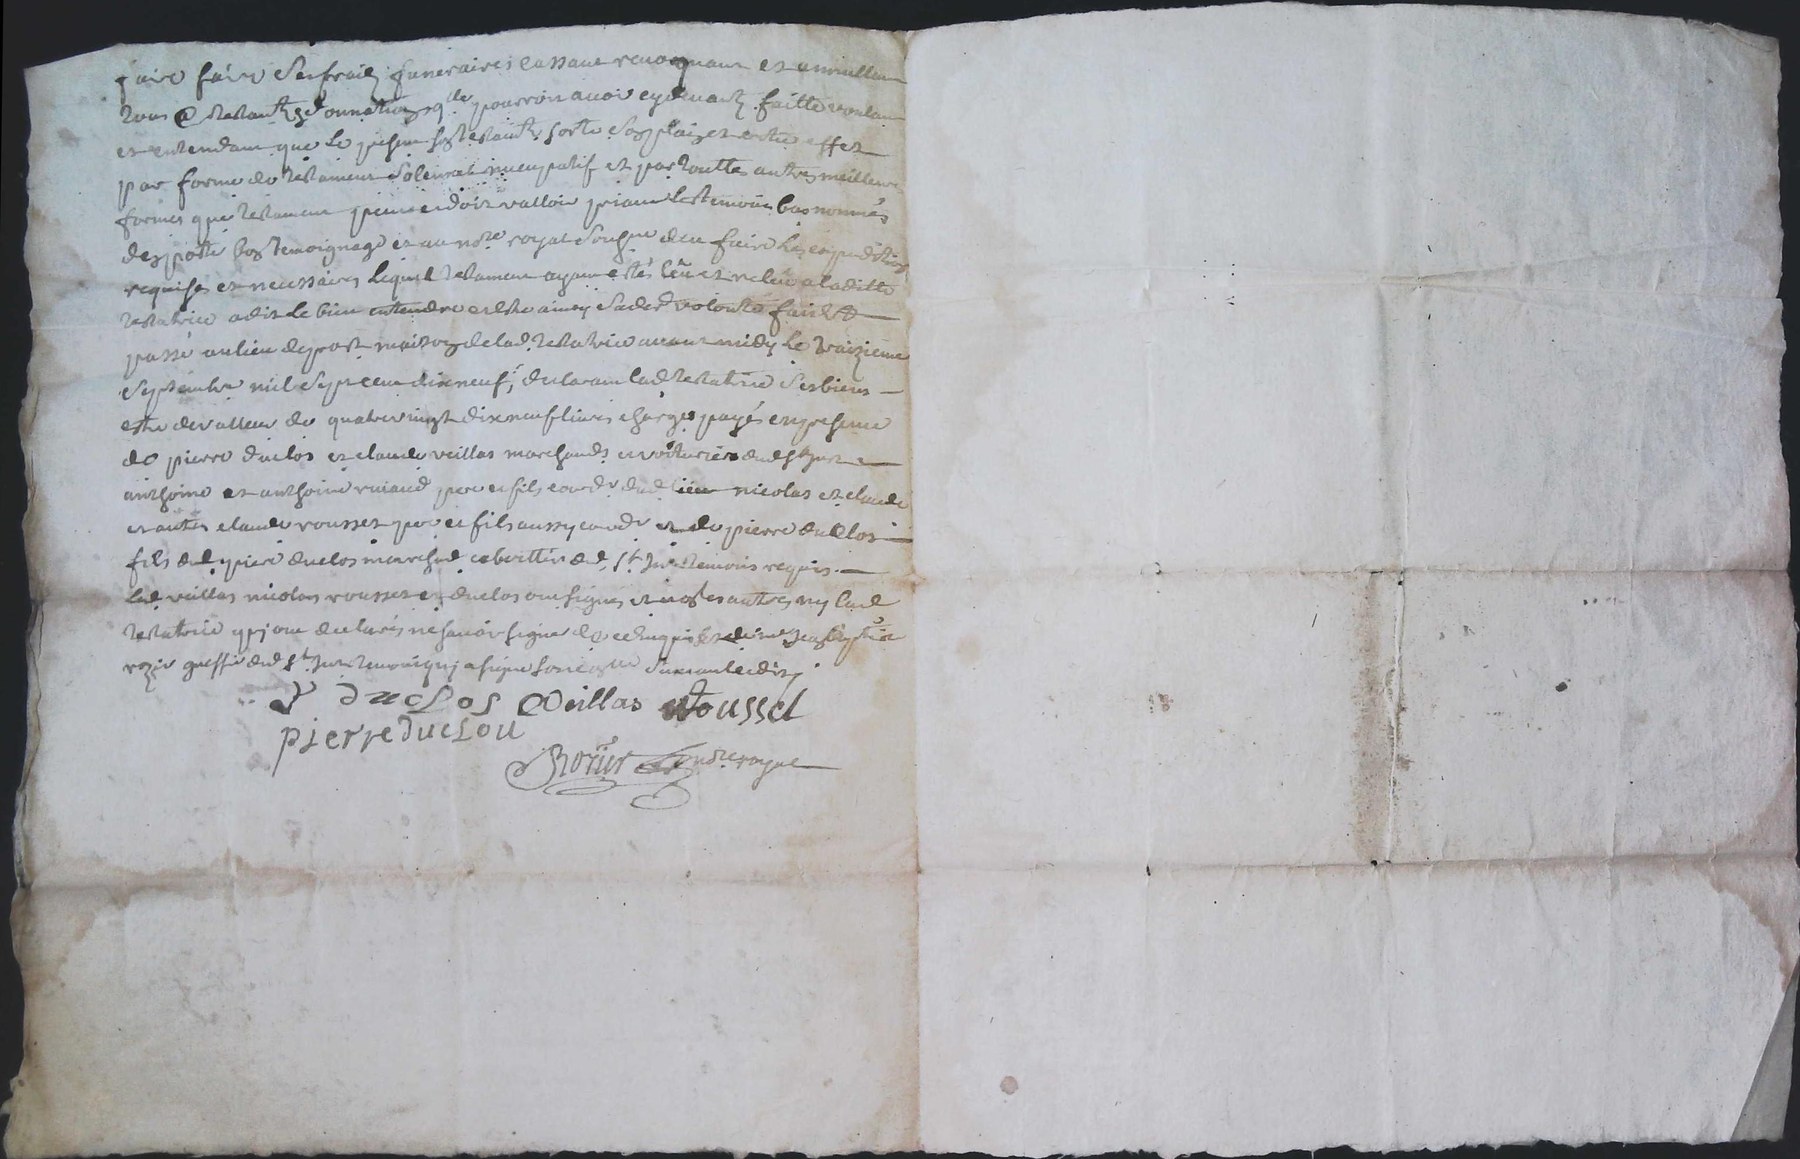 faire faire ses frais funeraires cassant revoquant et annullant
tous testants donnations qlle pourroit avoir cydevant faitte voulant
et entendant que le present testamt sorte son plain et entier effet
par forme de testament solemnel nuncupatif et par touttes autres meilleures
formes que testament peut et doit valloir priant les temoins bas nommés
de porter temoignage et au nore royal soussne d'en faire les expeditions
requises et necessaires lequel testament ayant estés leu et releu a laditte
testatrice a dit le bien entendre estre ainsy sa der volonté fait et
passé au lieu de maison de lad testatrice avant midy le traizieme
septembre mil sept cent dix neuf, declarant lad testatrice ses biens
estre de valleur de quatre vingt dix neuf livres charges payés en presence
de pierre duclos et claude veillas marchands et voituriers dud st just
anthoine et anthoine pere et fils cordr dud lieu nicolas et claude
et autre claude rousset pere et fils aussy cordr et de pierre duclos
fils dud piere duclos marchd cabarettier dud st just temoins requis
led veillas nicolas rousset et duclos ont signés et non les autres ny lad
testatrice qui ont declarés ne scavoir signer de ce enquis et de me
greffier dud st just temoin qui a signé
P duclos Veillas Rousset
pierre duclou
nore royal